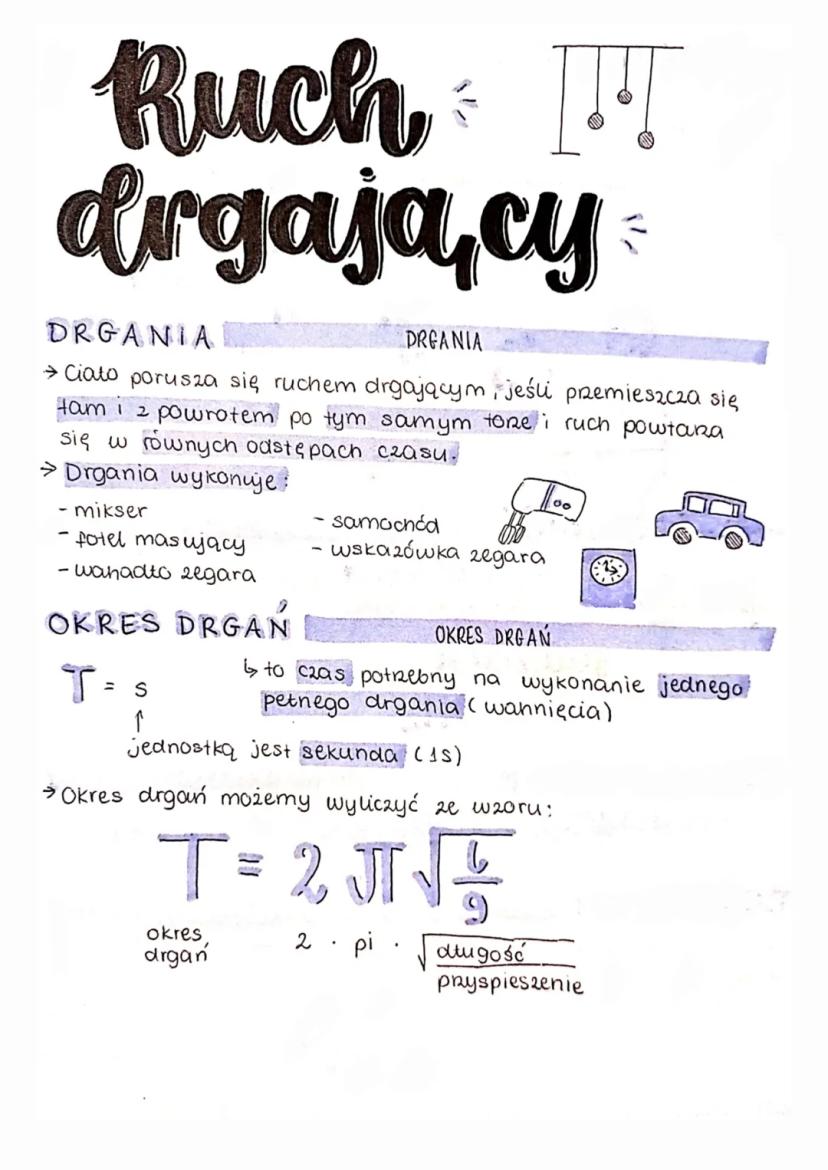 Ruch
drgający
DRGANIA DRGANIA
→ Ciało porusza się ruchem drgającym, jeśli przemieszcza się
tam i z powrotem po tym samym torze i ruch powtarza
się w równych odstępach czasu.
→ Drgania wykonuje:
- mikser
- fotel masujący
- wahadło zegara
- samochód
- wskazówka zegara
OKRES DRGAŃ OKRES DRGAŃ
T = s
↑
jednostką jest sekunda (1s)
↳ to czas potrzebny na wykonanie jednego
pełnego drgania (wahnięcia)
→ Okres drgań możemy wyliczyć ze wzoru:
T = 2 π √ l / g
okres drgań 2 · pi · √ długość / przyspieszenie